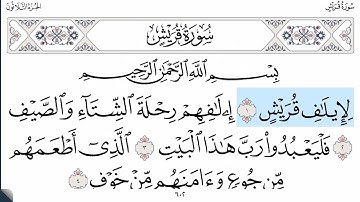 سُورَةُ قُرَيْشٍ الجزء الثلاثون
سُورَةُ قُرَيْشٍ
بِسْمِ اللَّهِ الرَّحْمَٰنِ الرَّحِيمِ
لِإِيلَٰفِ قُرَيْشٍ ١ إِۦلَٰفِهِمْ رِحْلَةَ ٱلشِّتَآءِ وَٱلصَّيْفِ
٢ فَلْيَعْبُدُوا۟ رَبَّ هَٰذَا ٱلْبَيْتِ ٣ ٱلَّذِىٓ أَطْعَمَهُم
مِّن جُوعٍ وَءَامَنَهُم مِّنْ خَوْفٍۭ ٤
٦٠٢